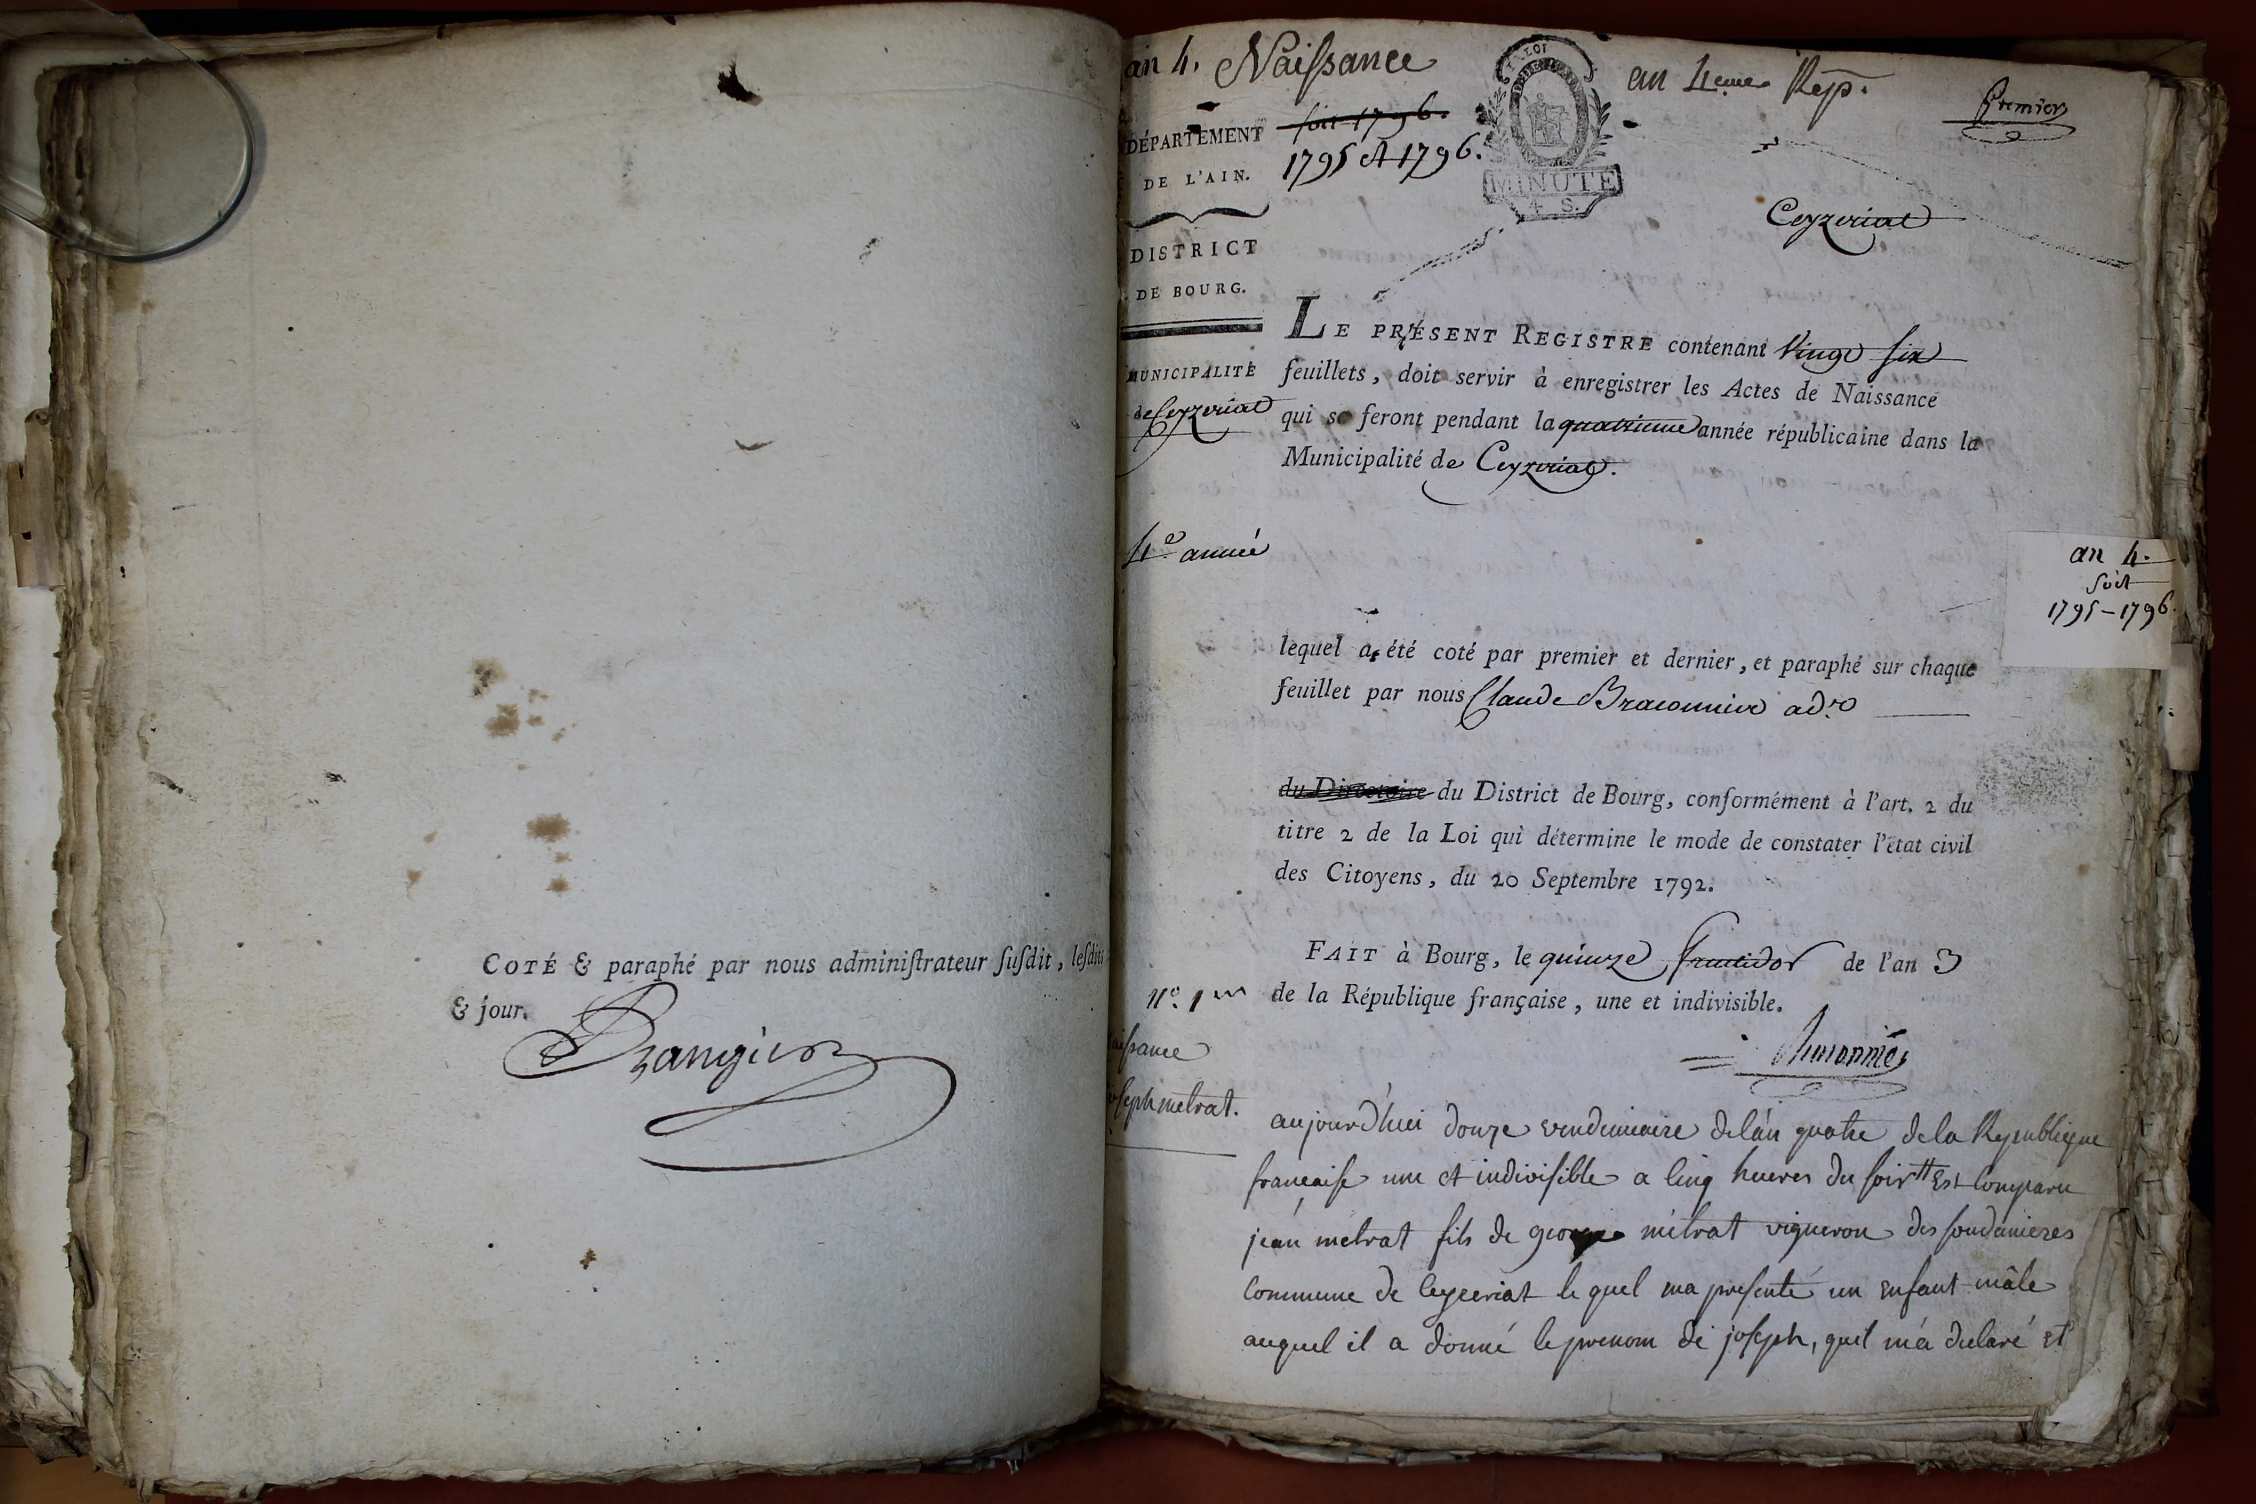 COTÉ & paraphé par nous administrateur susdit, lesdits
& jour.
an 4. Naissance
an 4eme Rep.
Premier
soit 1796.
1795 et 1796.
DÉPARTEMENT
DE L'AIN.
LA LOI
MINUTE
4 S.
Ceyzeriat
DISTRICT
DE BOURG.
MUNICIPALITÉ
de Ceyzeriat
LE PRÉSENT REGISTRE contenant Vingt six
feuillets, doit servir à enregistrer les Actes de Naissance
qui se feront pendant la quatrieme année républicaine dans la
Municipalité de Ceyzeriat.
4e année
an 4.
soit
1795-1796.
lequel a été coté par premier et dernier, et paraphé sur chaque
feuillet par nous Claude Braconnier adr
du Directoire du District de Bourg, conformément à l'art. 2 du
titre 2 de la Loi qui détermine le mode de constater l'état civil
des Citoyens, du 20 Septembre 1792.
FAIT à Bourg, le quinze fructidor de l'an 3
de la République française, une et indivisible.
N°. 1er
aissance
oseph metrat.
aujourd'hui douze vendemiaire de lan quatre de la Republique
francaise une et indivisible a cinq heures du soir Est Comparu
jean metrat fils de george metrat vigneron des soudanieres
Commune de Ceyzeriat le quel ma presenté un enfant mâle
auquel il a donné le prenom de joseph, quil m'a declaré et